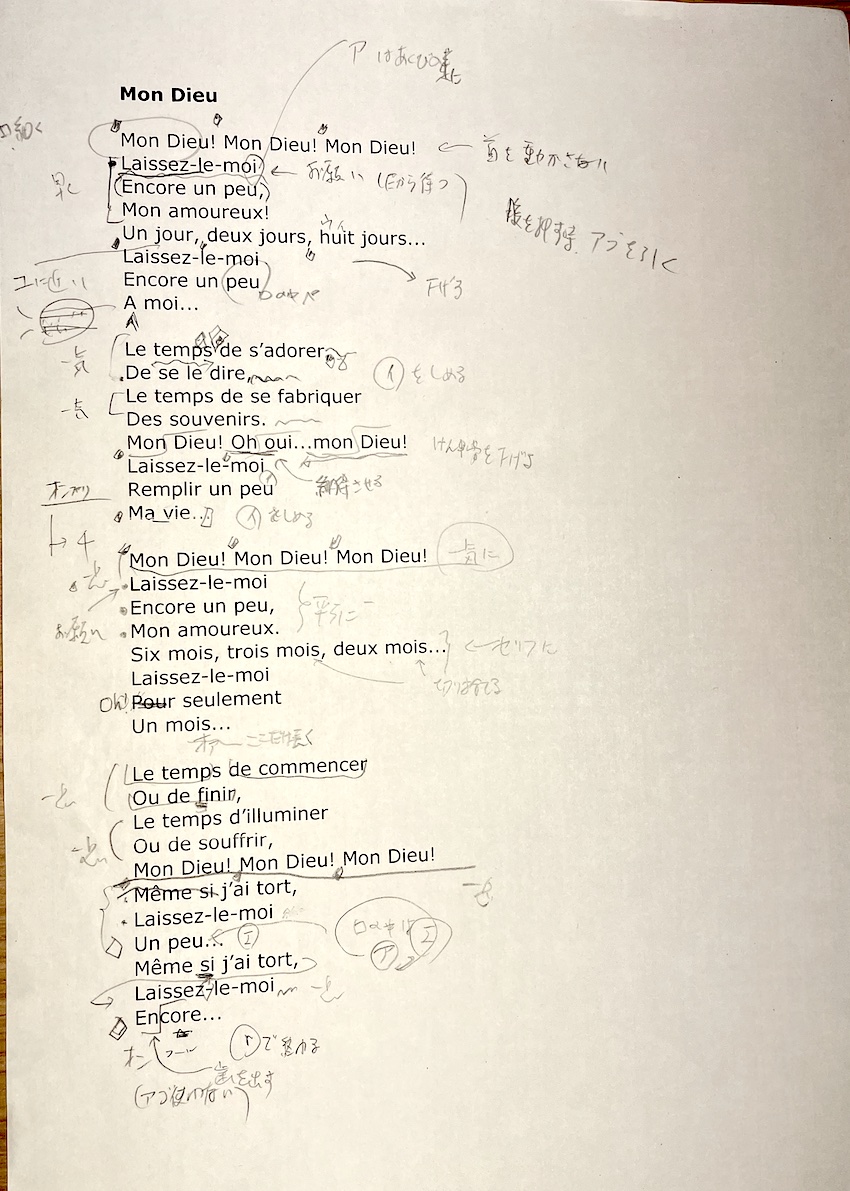 ア はあくびの
Mon Dieu
Mon Dieu! Mon Dieu! Mon Dieu! ← 首を動かさない
Laissez-le-moi ← お願い
Encore un peu,
Mon amoureux!
腹を押す アゴを引く
Un jour, deux jours, huit jours...
Laissez-le-moi
Encore un peu
下げる
A moi...
Le temps de s'adorer
一気
De se le dire,
イをしめる
Le temps de se fabriquer
一気
Des souvenirs.
Mon Dieu! Oh oui...mon Dieu!
Laissez-le-moi
Remplir un peu 納得させる
Ma vie.. イをしめる
Mon Dieu! Mon Dieu! Mon Dieu! 一気に
Laissez-le-moi
Encore un peu,
お願い
Mon amoureux.
Six mois, trois mois, deux mois... ← セリフに
Laissez-le-moi
切り捨てる
Oh! Pour seulement
Un mois...
ここだけ長く
Le temps de commencer
Ou de finir,
Le temps d'illuminer
Ou de souffrir,
Mon Dieu! Mon Dieu! Mon Dieu!
Même si j'ai tort,
Laissez-le-moi
口の中は エ
Un peu... エ
ア
Même si j'ai tort,
Laissez-le-moi
Encore...
オン
で終わる
歯を出す
(アゴ使わない)